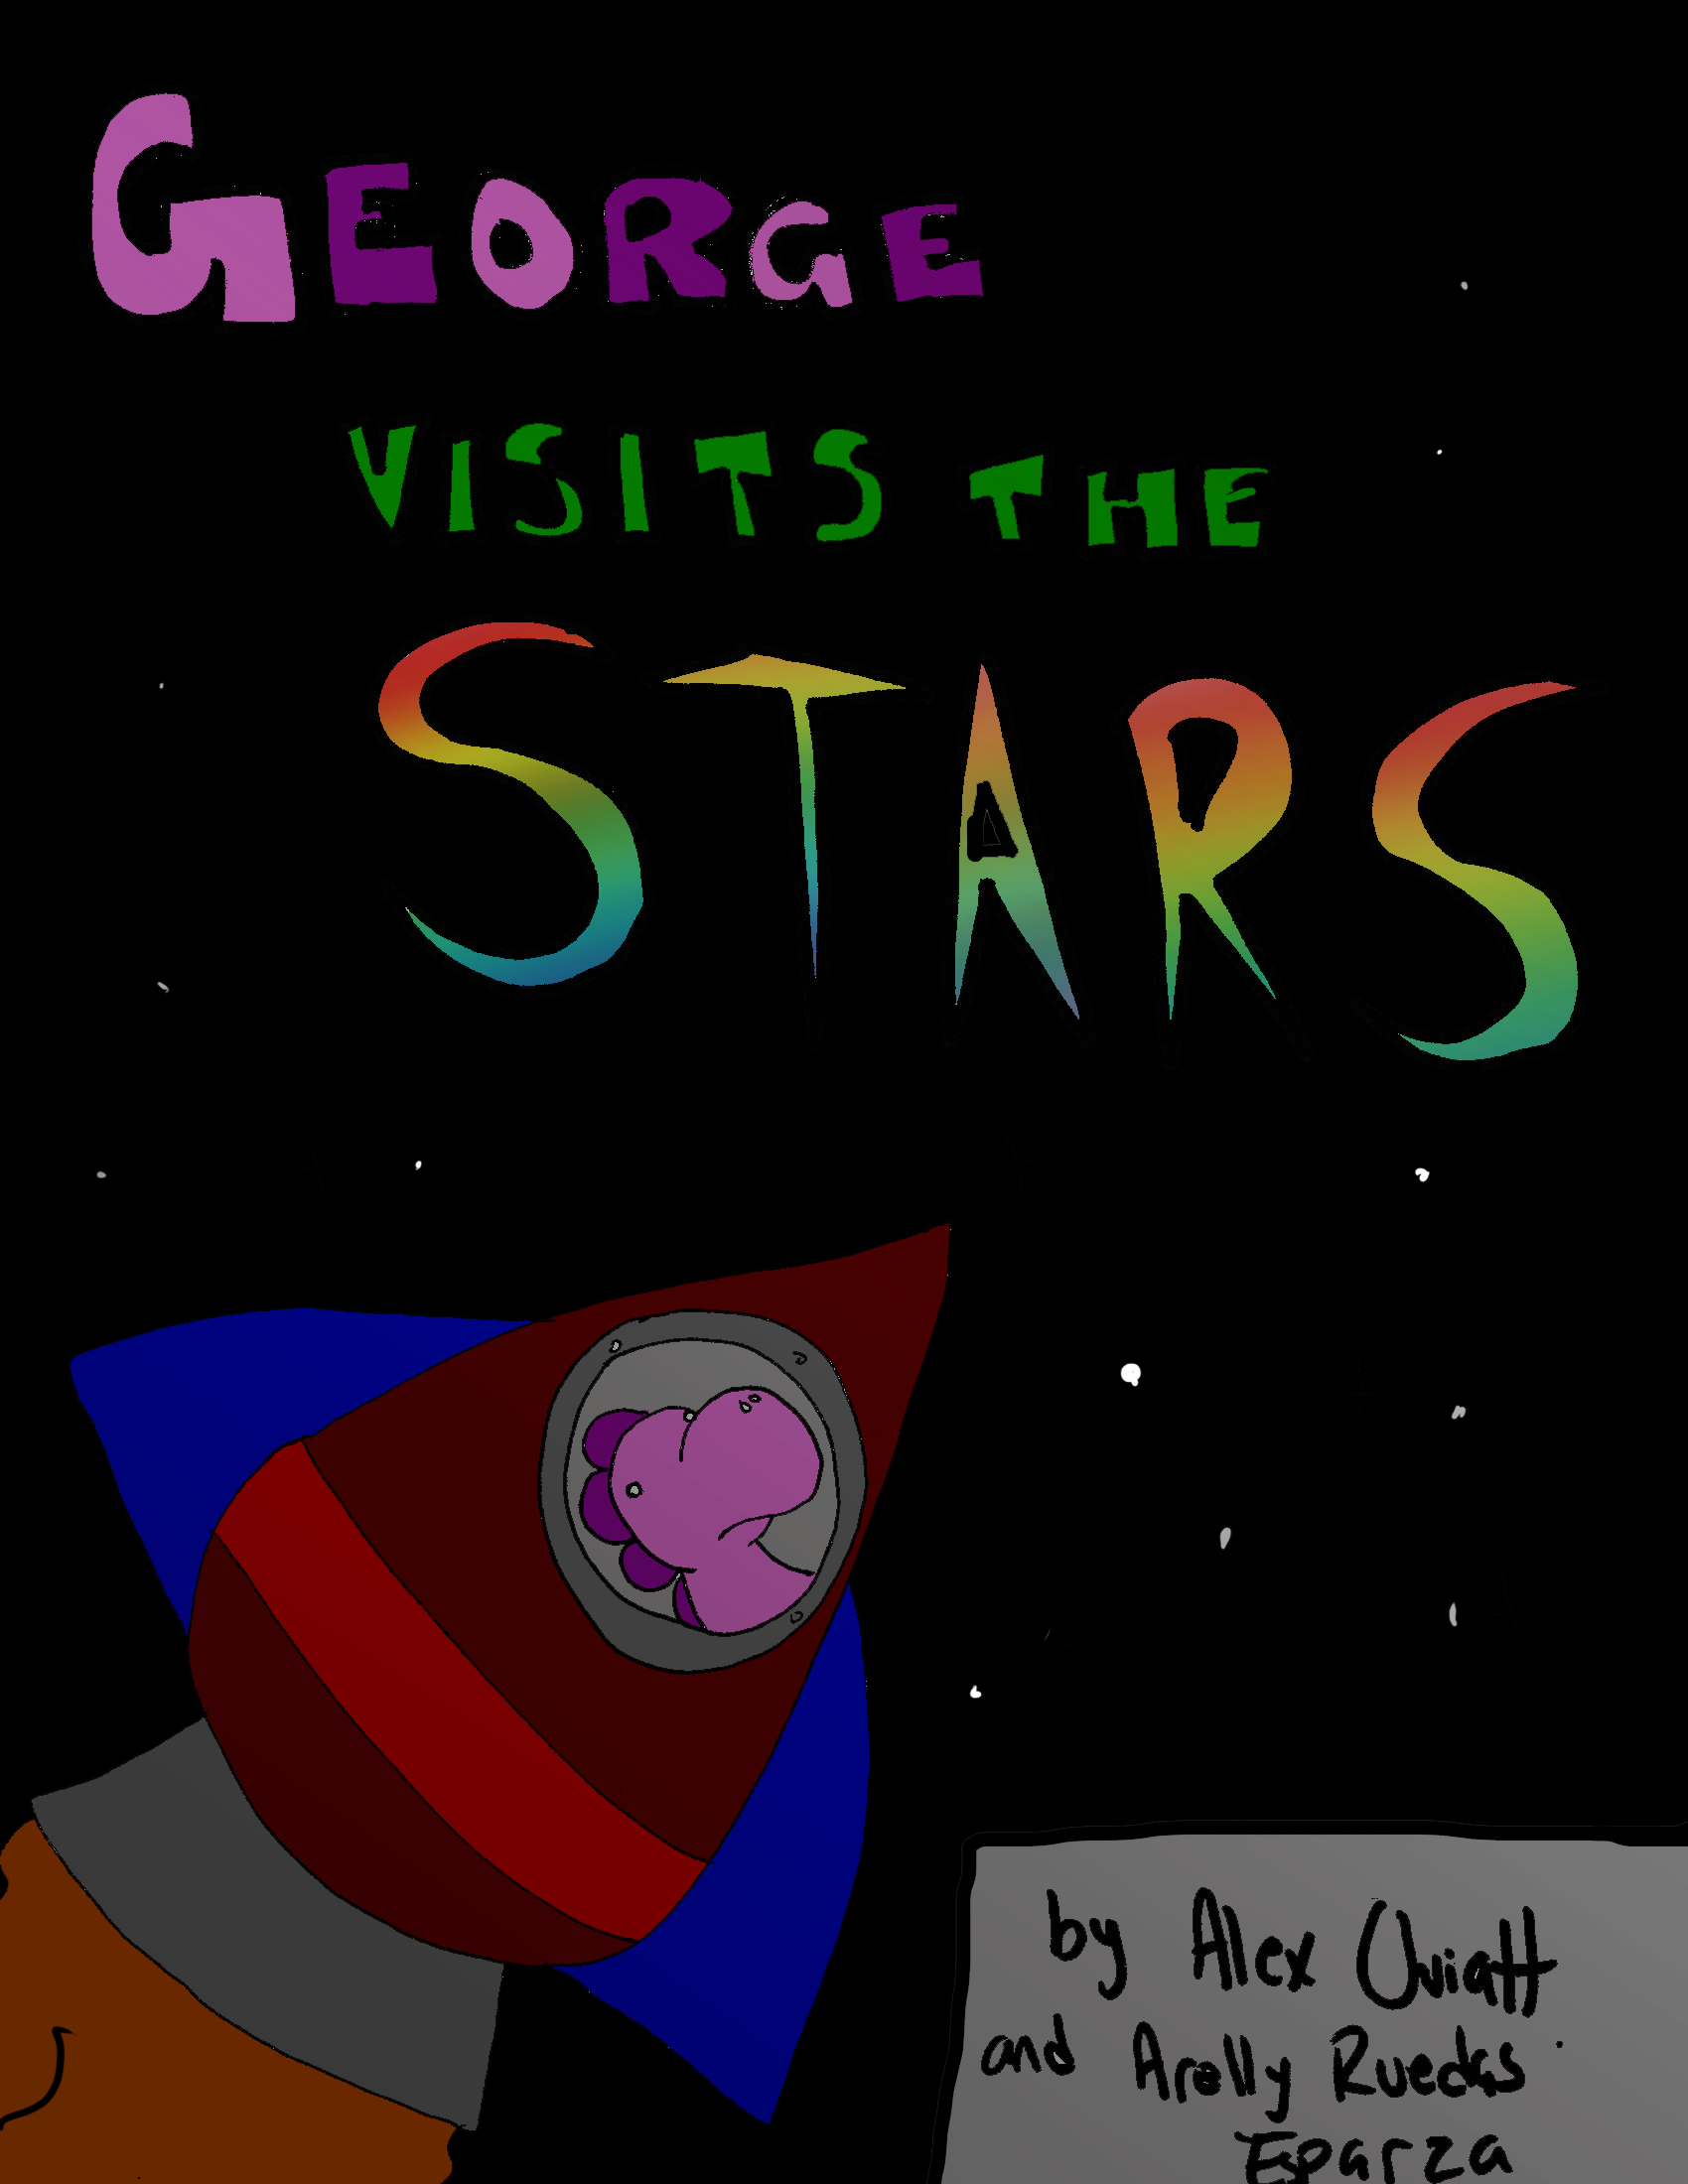 GEORGE
VISITS THE
STARS
by Alex Uviatt
and Arelly Ruedas
Esparza